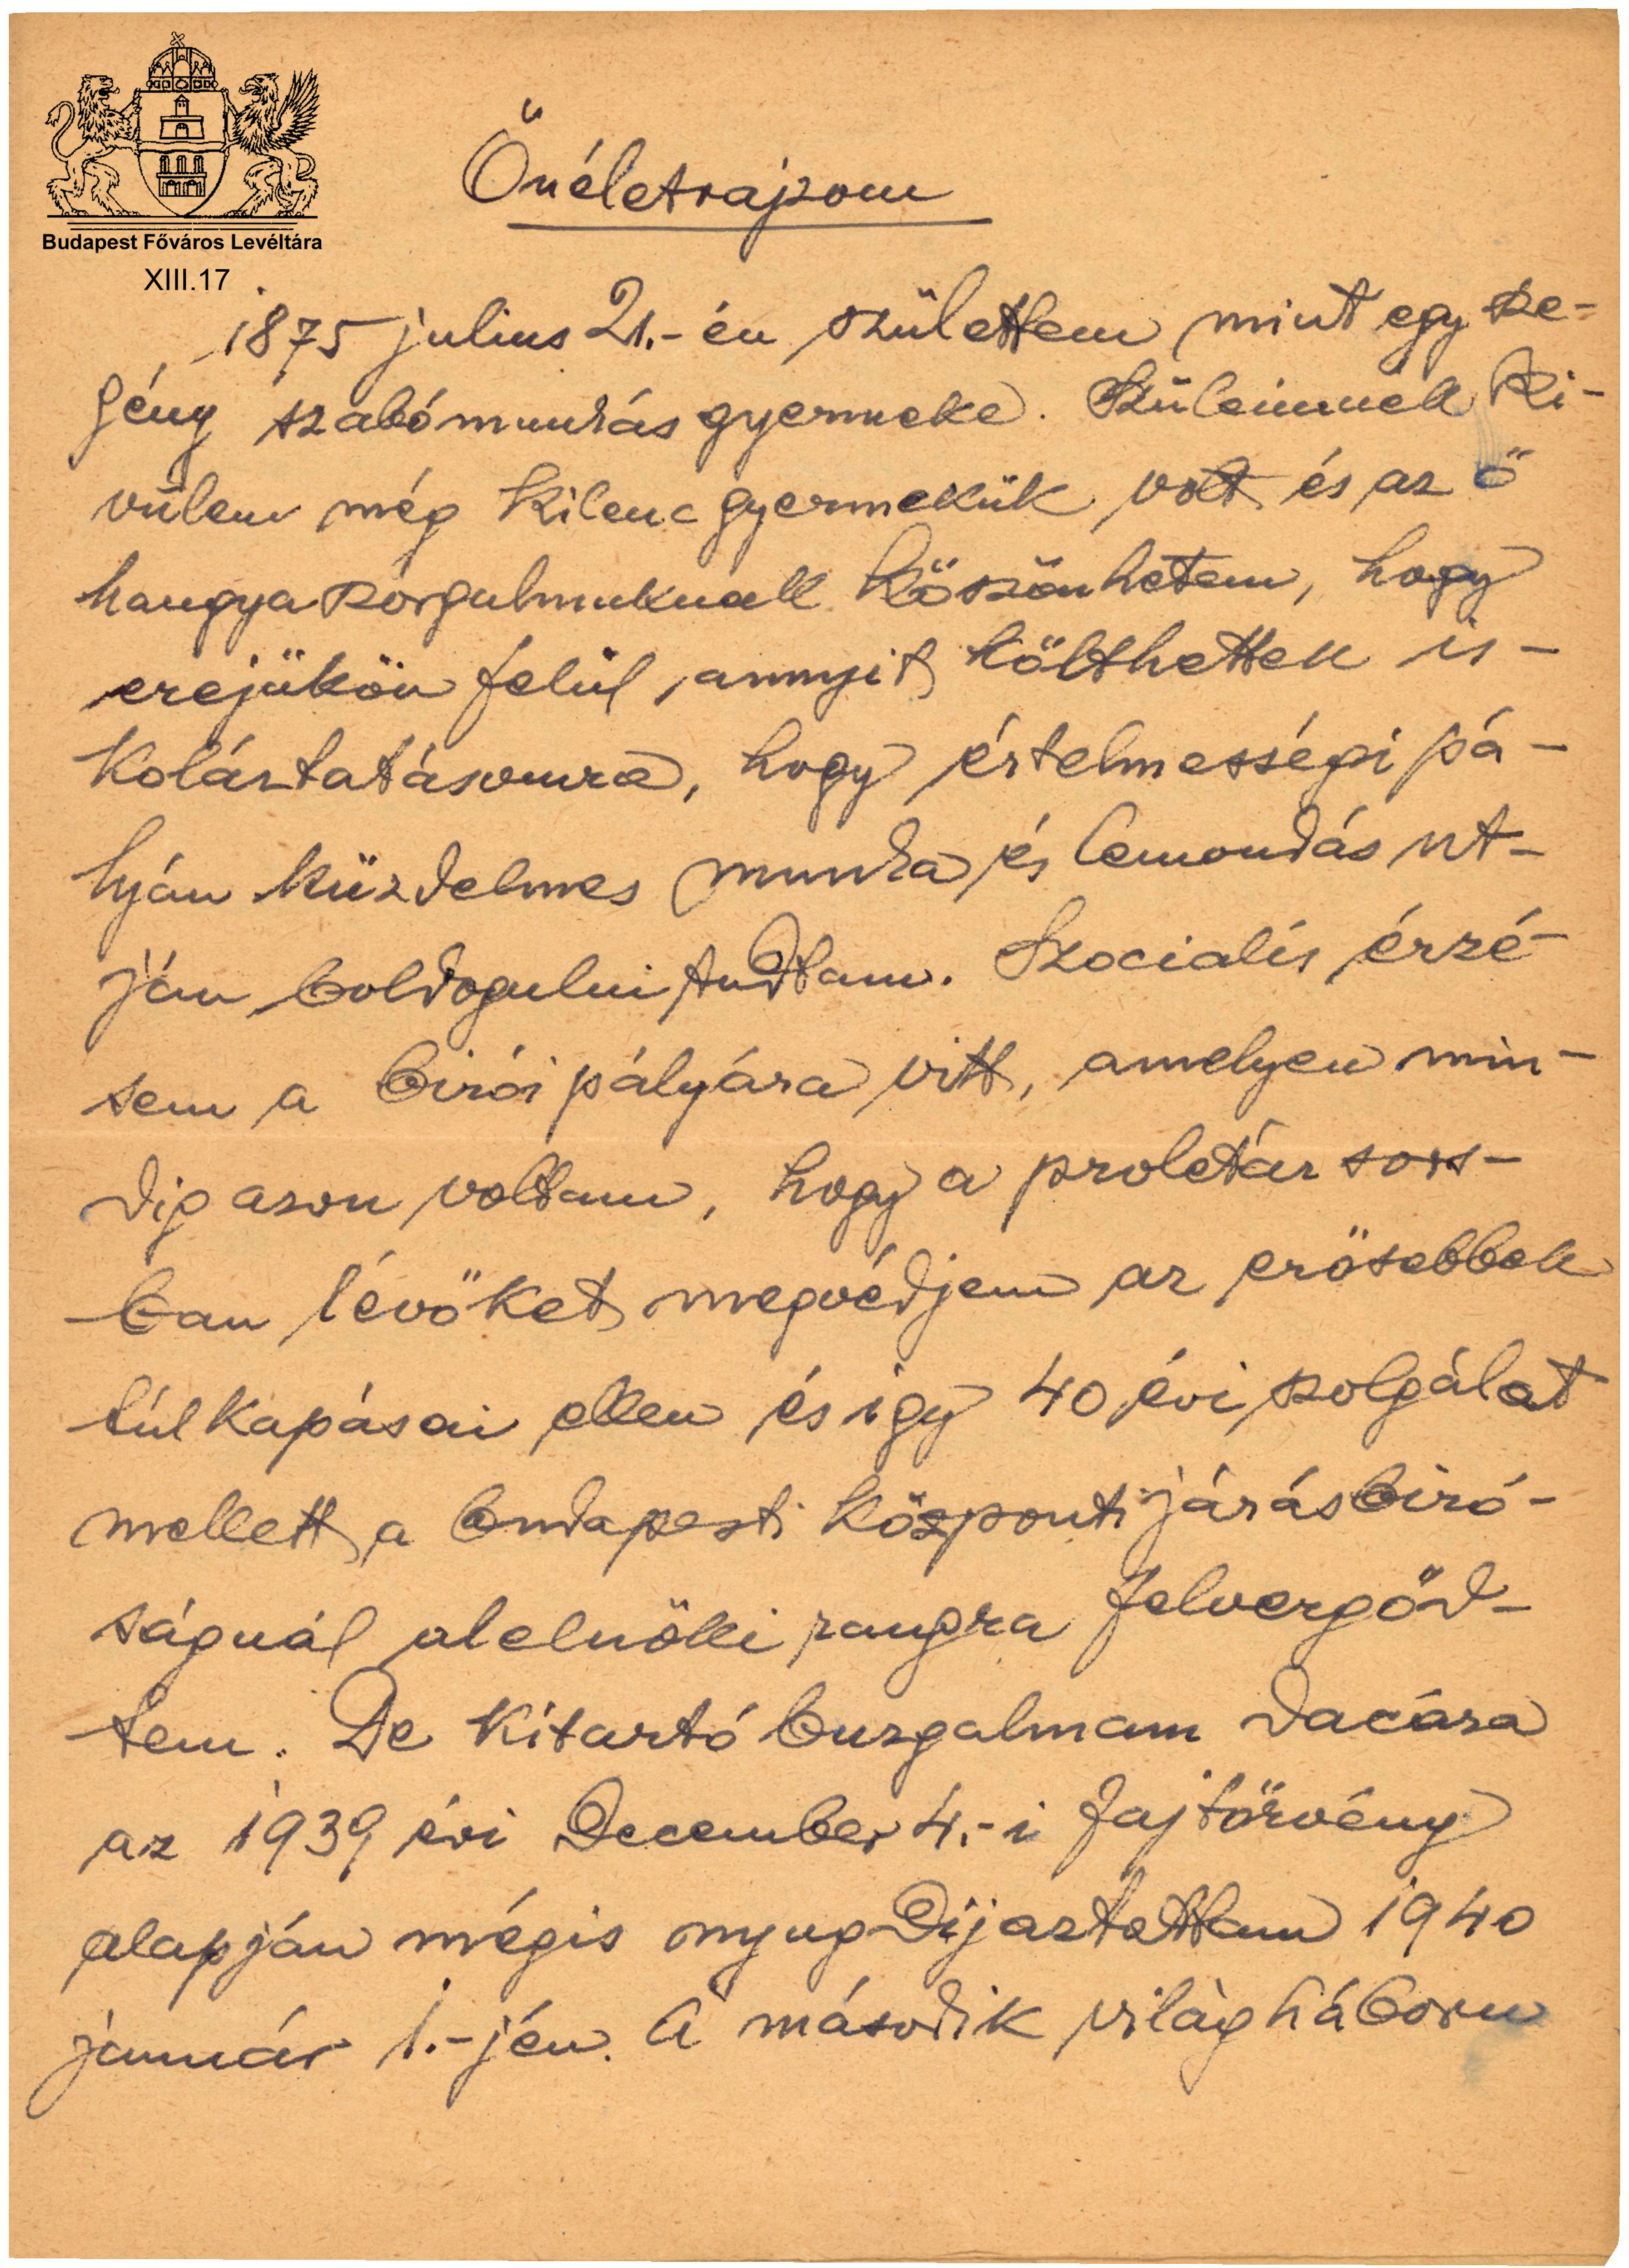 Budapest Főváros Levéltára
XIII.17
Önéletrajzom
1875 julius 21.-én születtem mint egy sze-
gény szabómunkás gyermeke. Szüleimnek ki-
vülem még kilenc gyermekük volt és az ő
hangyaszorgalmuknak köszönhetem, hogy
erejükön felül annyit költhettek is-
koláztatásomra, hogy értelmességi pá-
lyán küzdelmes munka és lemondás ut-
ján boldogulni tudtam. Szociális érzé-
sem a birói pályára vitt, amelyen min-
dig azon voltam, hogy a proletár sors-
ban lévőket megvédjem az erősebbek
túlkapásai ellen és igy 40 évi szolgálat
mellett a budapesti központi járásbiró-
ságnál alelnöki rangra felvergőd-
tem. De kitartó buzgalmam dacára
az 1939 évi December 4.-i fajtörvény
alapján mégis nyugdíjaztattam 1940
január 1.-jén. A második világháboru